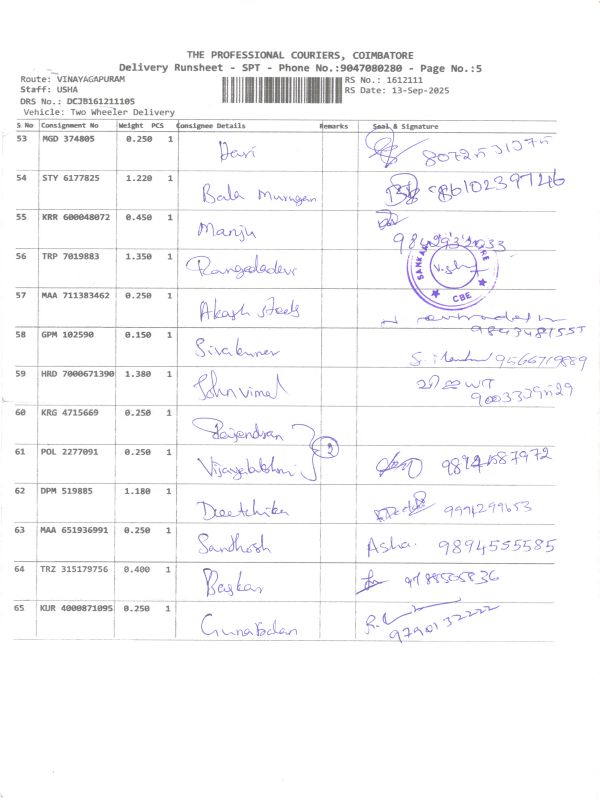 THE PROFESSIONAL COURIERS, COIMBATORE
Delivery Runsheet - SPT - Phone No.:9047080280 - Page No.:5
Route: VINAYAGAPURAM RS No.: 1612111
Staff: USHA RS Date: 13-Sep-2025
DRS No.: DCJB161211105
Vehicle: Two Wheeler Delivery
S No Consignment No Weight PCS Consignee Details Remarks Seal & Signature
53 MGD 374805 0.250 1 Hari
54 STY 6177825 1.220 1 Bala Murugan 8610239746
55 KRR 600048072 0.450 1 Manju 9842932033
56 TRP 7019883 1.350 1 Rangadadevi CBE
57 MAA 711383462 0.250 1 Akash steels
9843481555
58 GPM 102590 0.150 1 Sivakumar 9566719889
59 HRD 7000671390 1.380 1 John vimal
9003339529
60 KRG 4715669 0.250 1 Rajendran
2
61 POL 2277091 0.250 1 Vijayalakshmi 9894587972
62 DPM 519885 1.180 1 Deetchika 9994299653
63 MAA 651936991 0.250 1 Sandhosh Asha. 9894555585
64 TRZ 315179756 0.400 1 Baskar 9788505836
65 KUR 4000871095 0.250 1 Gunabalan
9790132222